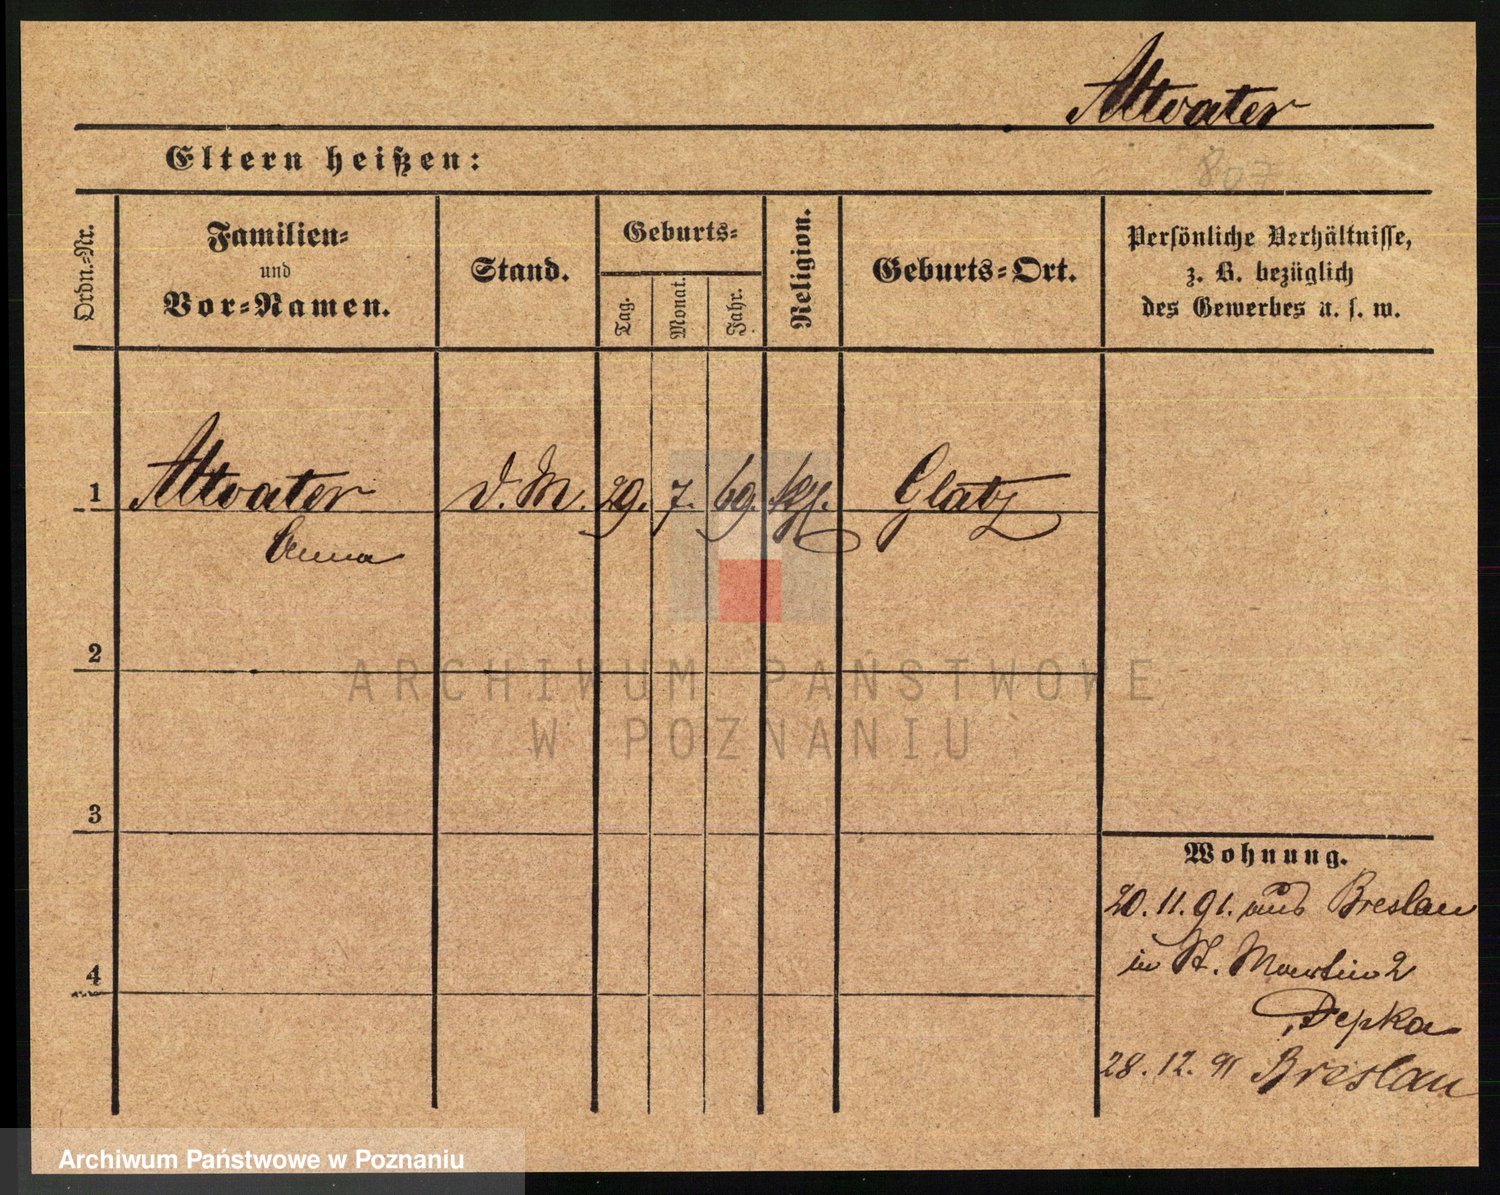 Altvater
807
Eltern heißen:
Ordn.-Nr.
Familien-
und
Vor-Namen.
Stand.
Geburts-
Tag.
Monat.
Jahr.
Religion.
Geburts-Ort.
Persönliche Verhältnisse,
z. B. bezüglich
des Gewerbes u. s. w.
1 Altvater d. M. 29. 7. 69. Glatz
Anna
2
3
4
Wohnung.
20. 11. 91. aus Breslau
in St. Martin 2
Depka
28. 12. 91 Breslau
ARCHIWUM PAŃSTWOWE
W POZNANIU
Archiwum Państwowe w Poznaniu